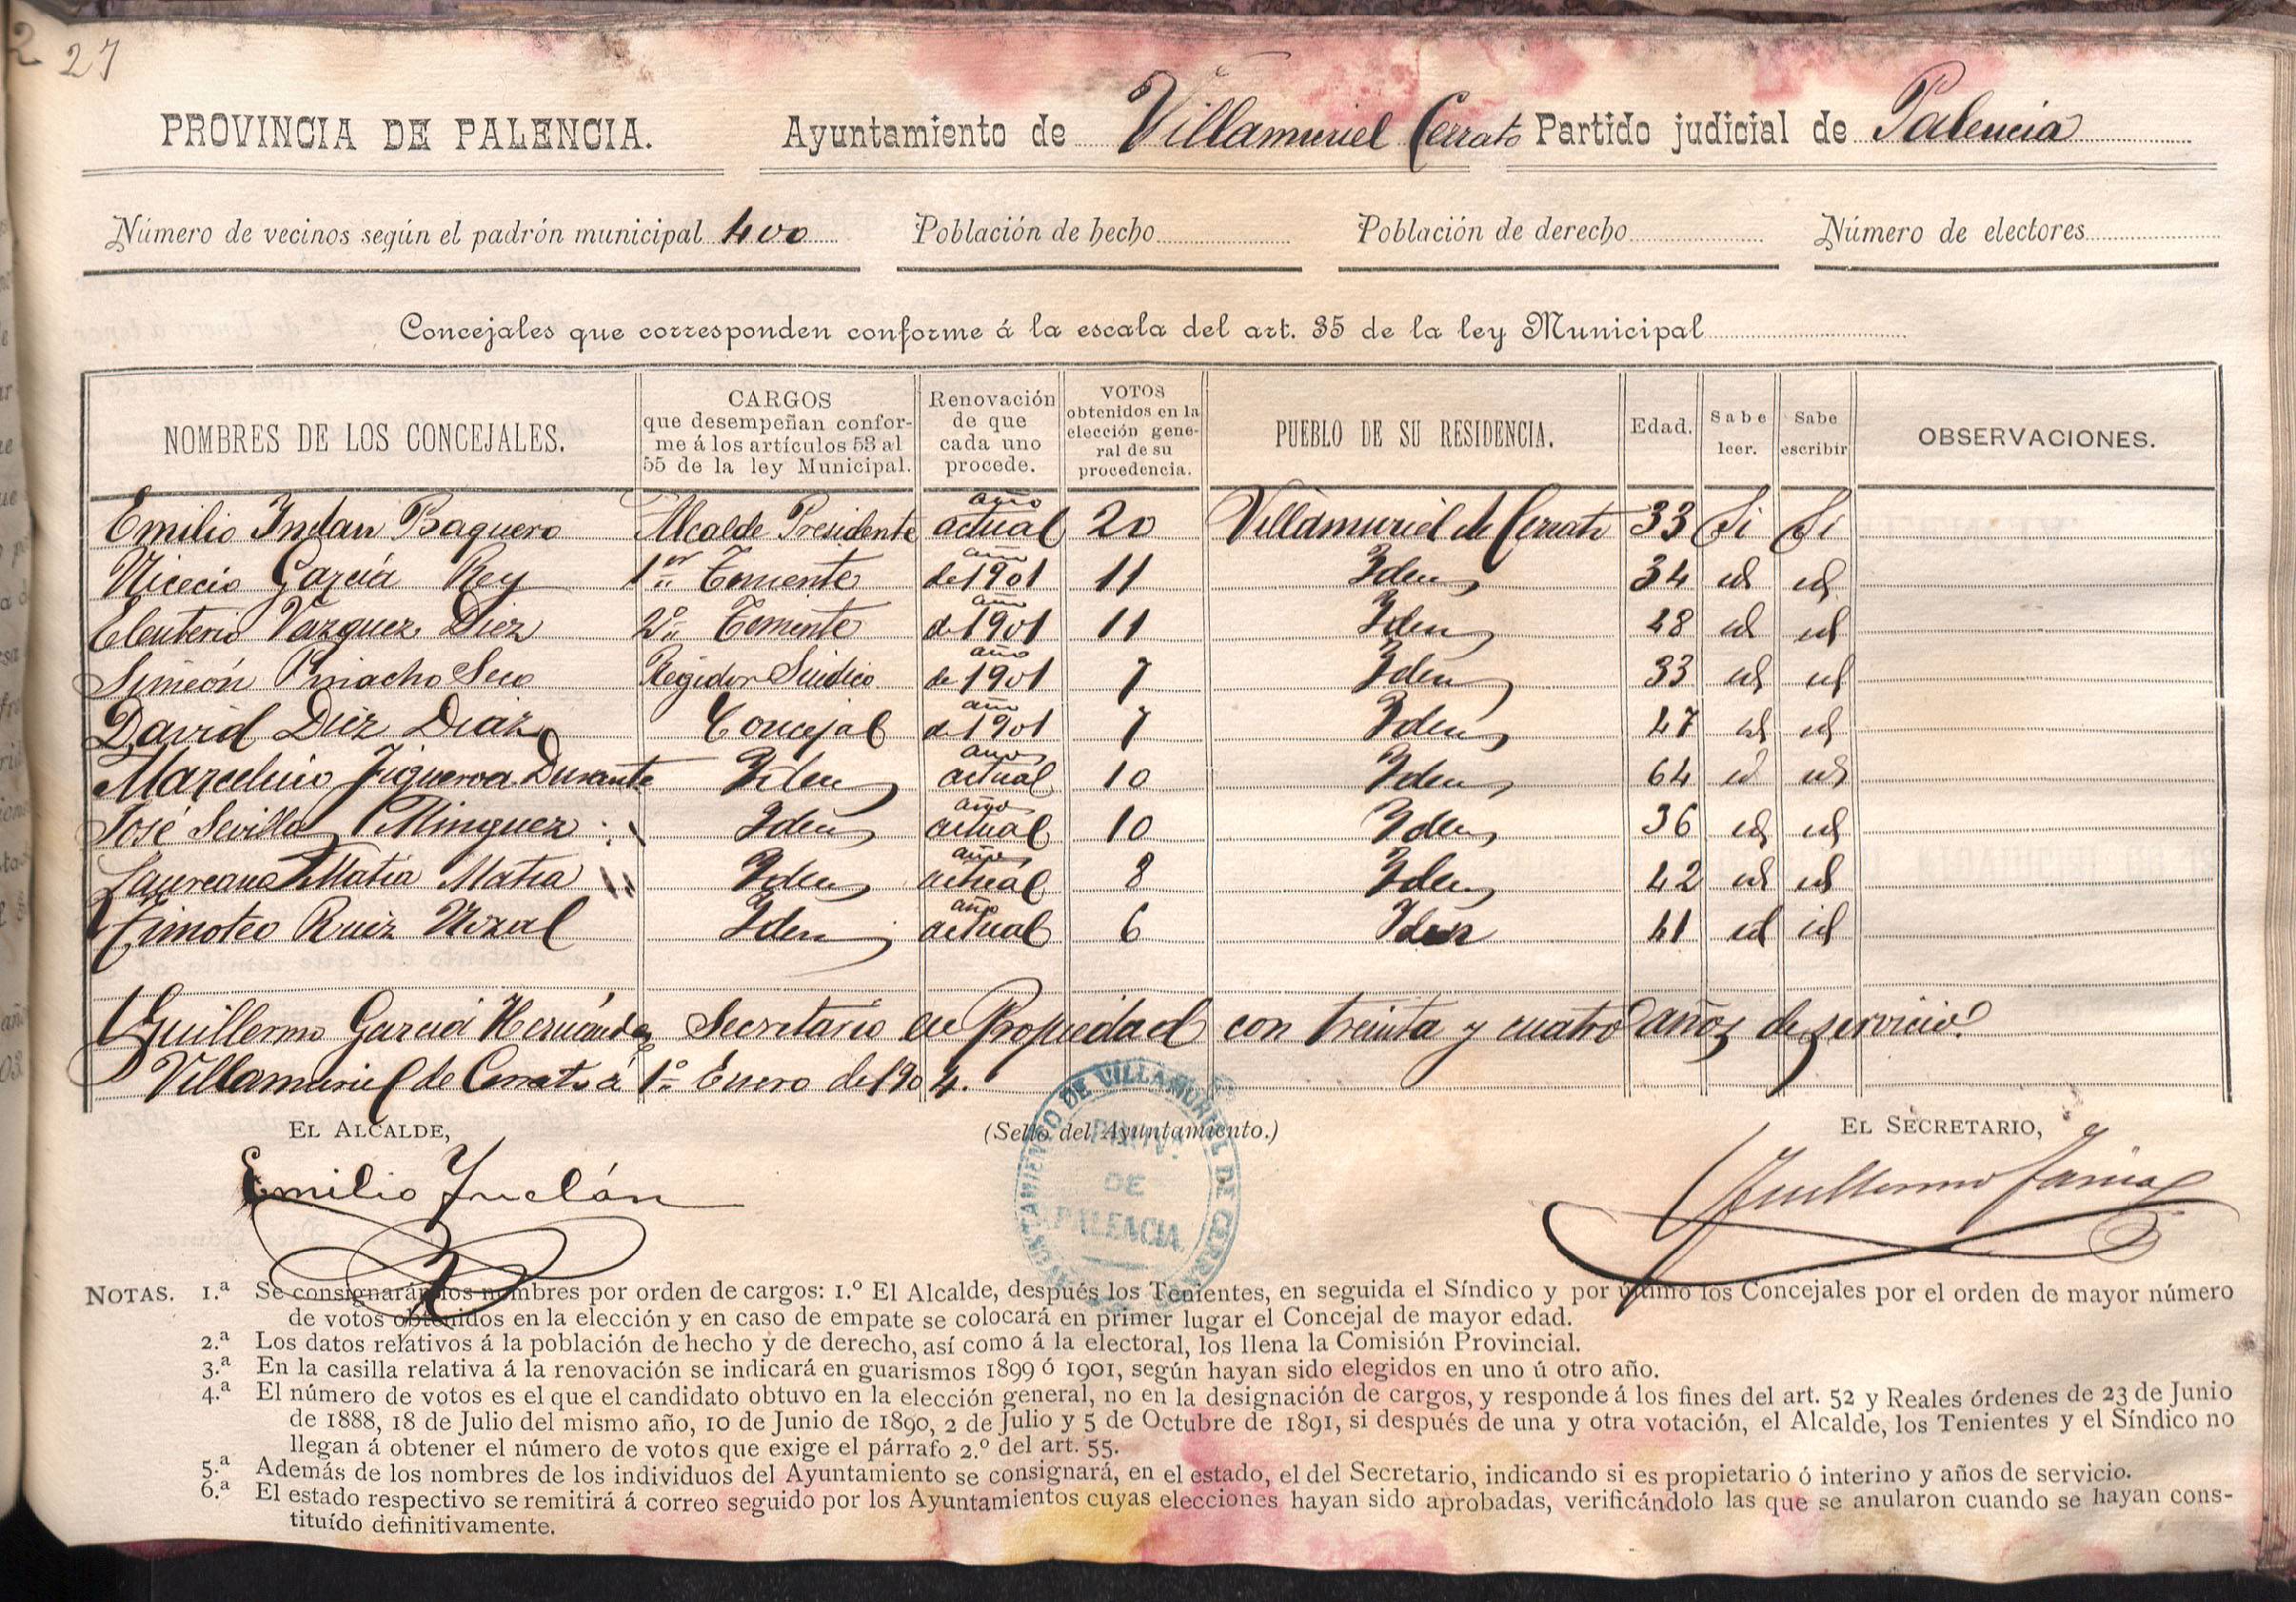 27
PROVINCIA DE PALENCIA. Ayuntamiento de Villamuriel Cerrato Partido judicial de Palencia
Número de vecinos según el padrón municipal 400 Población de hecho Población de derecho Número de electores
Concejales que corresponden conforme á la escala del art. 35 de la ley Municipal
NOMBRES DE LOS CONCEJALES. CARGOS que desempeñan conforme á los artículos 53 al 55 de la ley Municipal. Renovación de que cada uno procede. VOTOS obtenidos en la elección general de su procedencia. PUEBLO DE SU RESIDENCIA. Edad. Sabe leer. Sabe escribir OBSERVACIONES.
Emilio Inclan Baquero Alcalde Presidente año actual 20 Villamuriel de Cerrato 33 Si Si
Nicecio García Rey 1er Teniente año de 1901 11 Idem 34 id id
Eleuterio Vazquez Diez 2º Teniente año de 1901 11 Idem 48 id id
Simeón Seco Regidor Sindico año de 1901 7 Idem 33 id id
David Diez Diaz Concejal año de 1901 7 Idem 47 id id
Marcelino Figueroa Durante Idem año actual 10 Idem 64 id id
José Sevilla Minguez Idem año actual 10 Idem 36 id id
Laureano Matia Matia Idem año actual 8 Idem 42 id id
Timoteo Ruiz Nozal Idem año actual 6 Idem 41 id id
Guillermo García Hernández Secretario en Propiedad con treinta y cuatro años de servicio.
Villamuriel de Cerrato á 1º Enero de 1904.
EL ALCALDE, (Sello del Ayuntamiento.) EL SECRETARIO,
Emilio Inclán
Guillermo García
AYUNTAMIENTO DE VILLAMURIEL DE CERRATO
PROV.
DE
PALENCIA
NOTAS. 1.ª Se consignarán los nombres por orden de cargos: 1.º El Alcalde, después los Tenientes, en seguida el Síndico y por último los Concejales por el orden de mayor número
de votos obtenidos en la elección y en caso de empate se colocará en primer lugar el Concejal de mayor edad.
2.ª Los datos relativos á la población de hecho y de derecho, así como á la electoral, los llena la Comisión Provincial.
3.ª En la casilla relativa á la renovación se indicará en guarismos 1899 ó 1901, según hayan sido elegidos en uno ú otro año.
4.ª El número de votos es el que el candidato obtuvo en la elección general, no en la designación de cargos, y responde á los fines del art. 52 y Reales órdenes de 23 de Junio
de 1888, 18 de Julio del mismo año, 10 de Junio de 1890, 2 de Julio y 5 de Octubre de 1891, si después de una y otra votación, el Alcalde, los Tenientes y el Síndico no
llegan á obtener el número de votos que exige el párrafo 2.º del art. 55.
5.ª Además de los nombres de los individuos del Ayuntamiento se consignará, en el estado, el del Secretario, indicando si es propietario ó interino y años de servicio.
6.ª El estado respectivo se remitirá á correo seguido por los Ayuntamientos cuyas elecciones hayan sido aprobadas, verificándolo las que se anularon cuando se hayan cons-
tituído definitivamente.